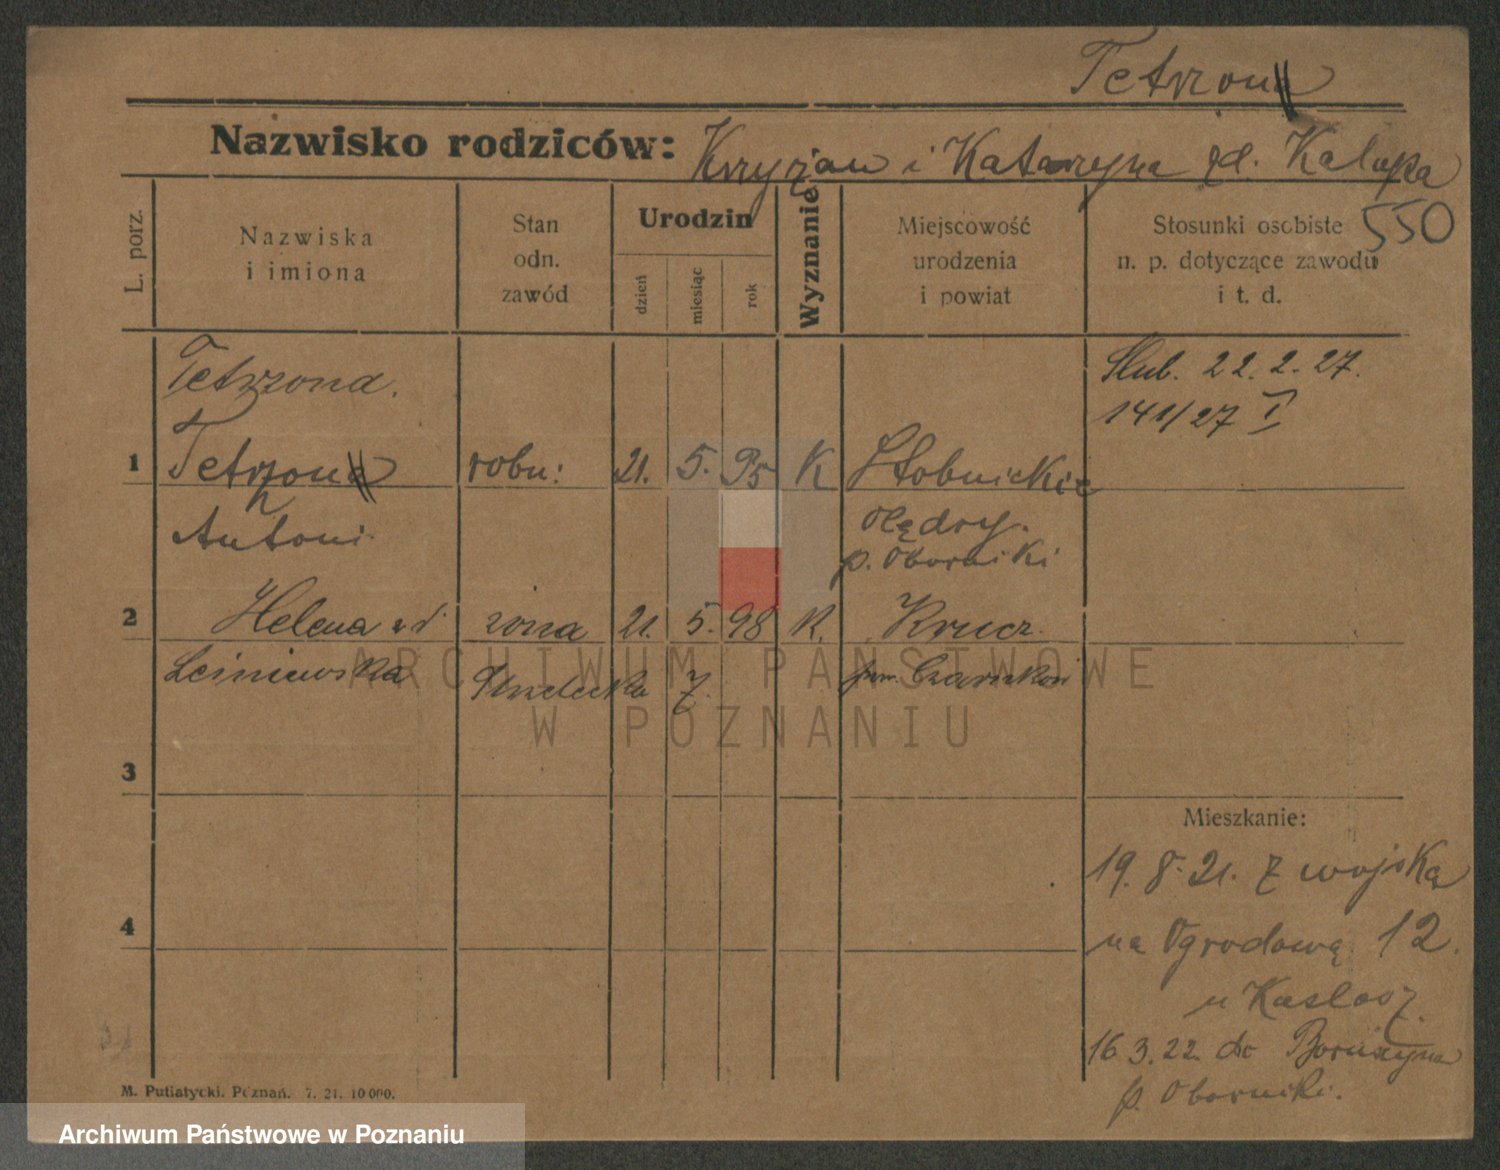 Tetrzona
Nazwisko rodziców: Krzyżan i Katarzyna zd. Kałupka
550
L. porz.
Nazwiska
i imiona
Stan
odn.
zawód
Urodzin
dzień
miesiąc
rok
Wyznanie
Miejscowość
urodzenia
i powiat
Stosunki osobiste
n. p. dotyczące zawodu
i t. d.
Tetrzona.
Ślub. 22.2.27.
141/27 I
1 Tetrzona robn: 21. 5. 95 K Słobnickie
Antoni olędry.
p. Oborniki
2 Helena zd żona 21. 5. 98 K. Krucz.
Leśniewska 7. pow. Czarnków
3
Mieszkanie:
19. 8. 21. z wojska
4
na Ogrodową 12.
u
16.3.22. do Boruszyna
p. Oborniki.
M. Putiatycki. Poznań. 7. 21. 10 000.
ARCHIWUM PAŃSTWOWE
W POZNANIU
Archiwum Państwowe w Poznaniu